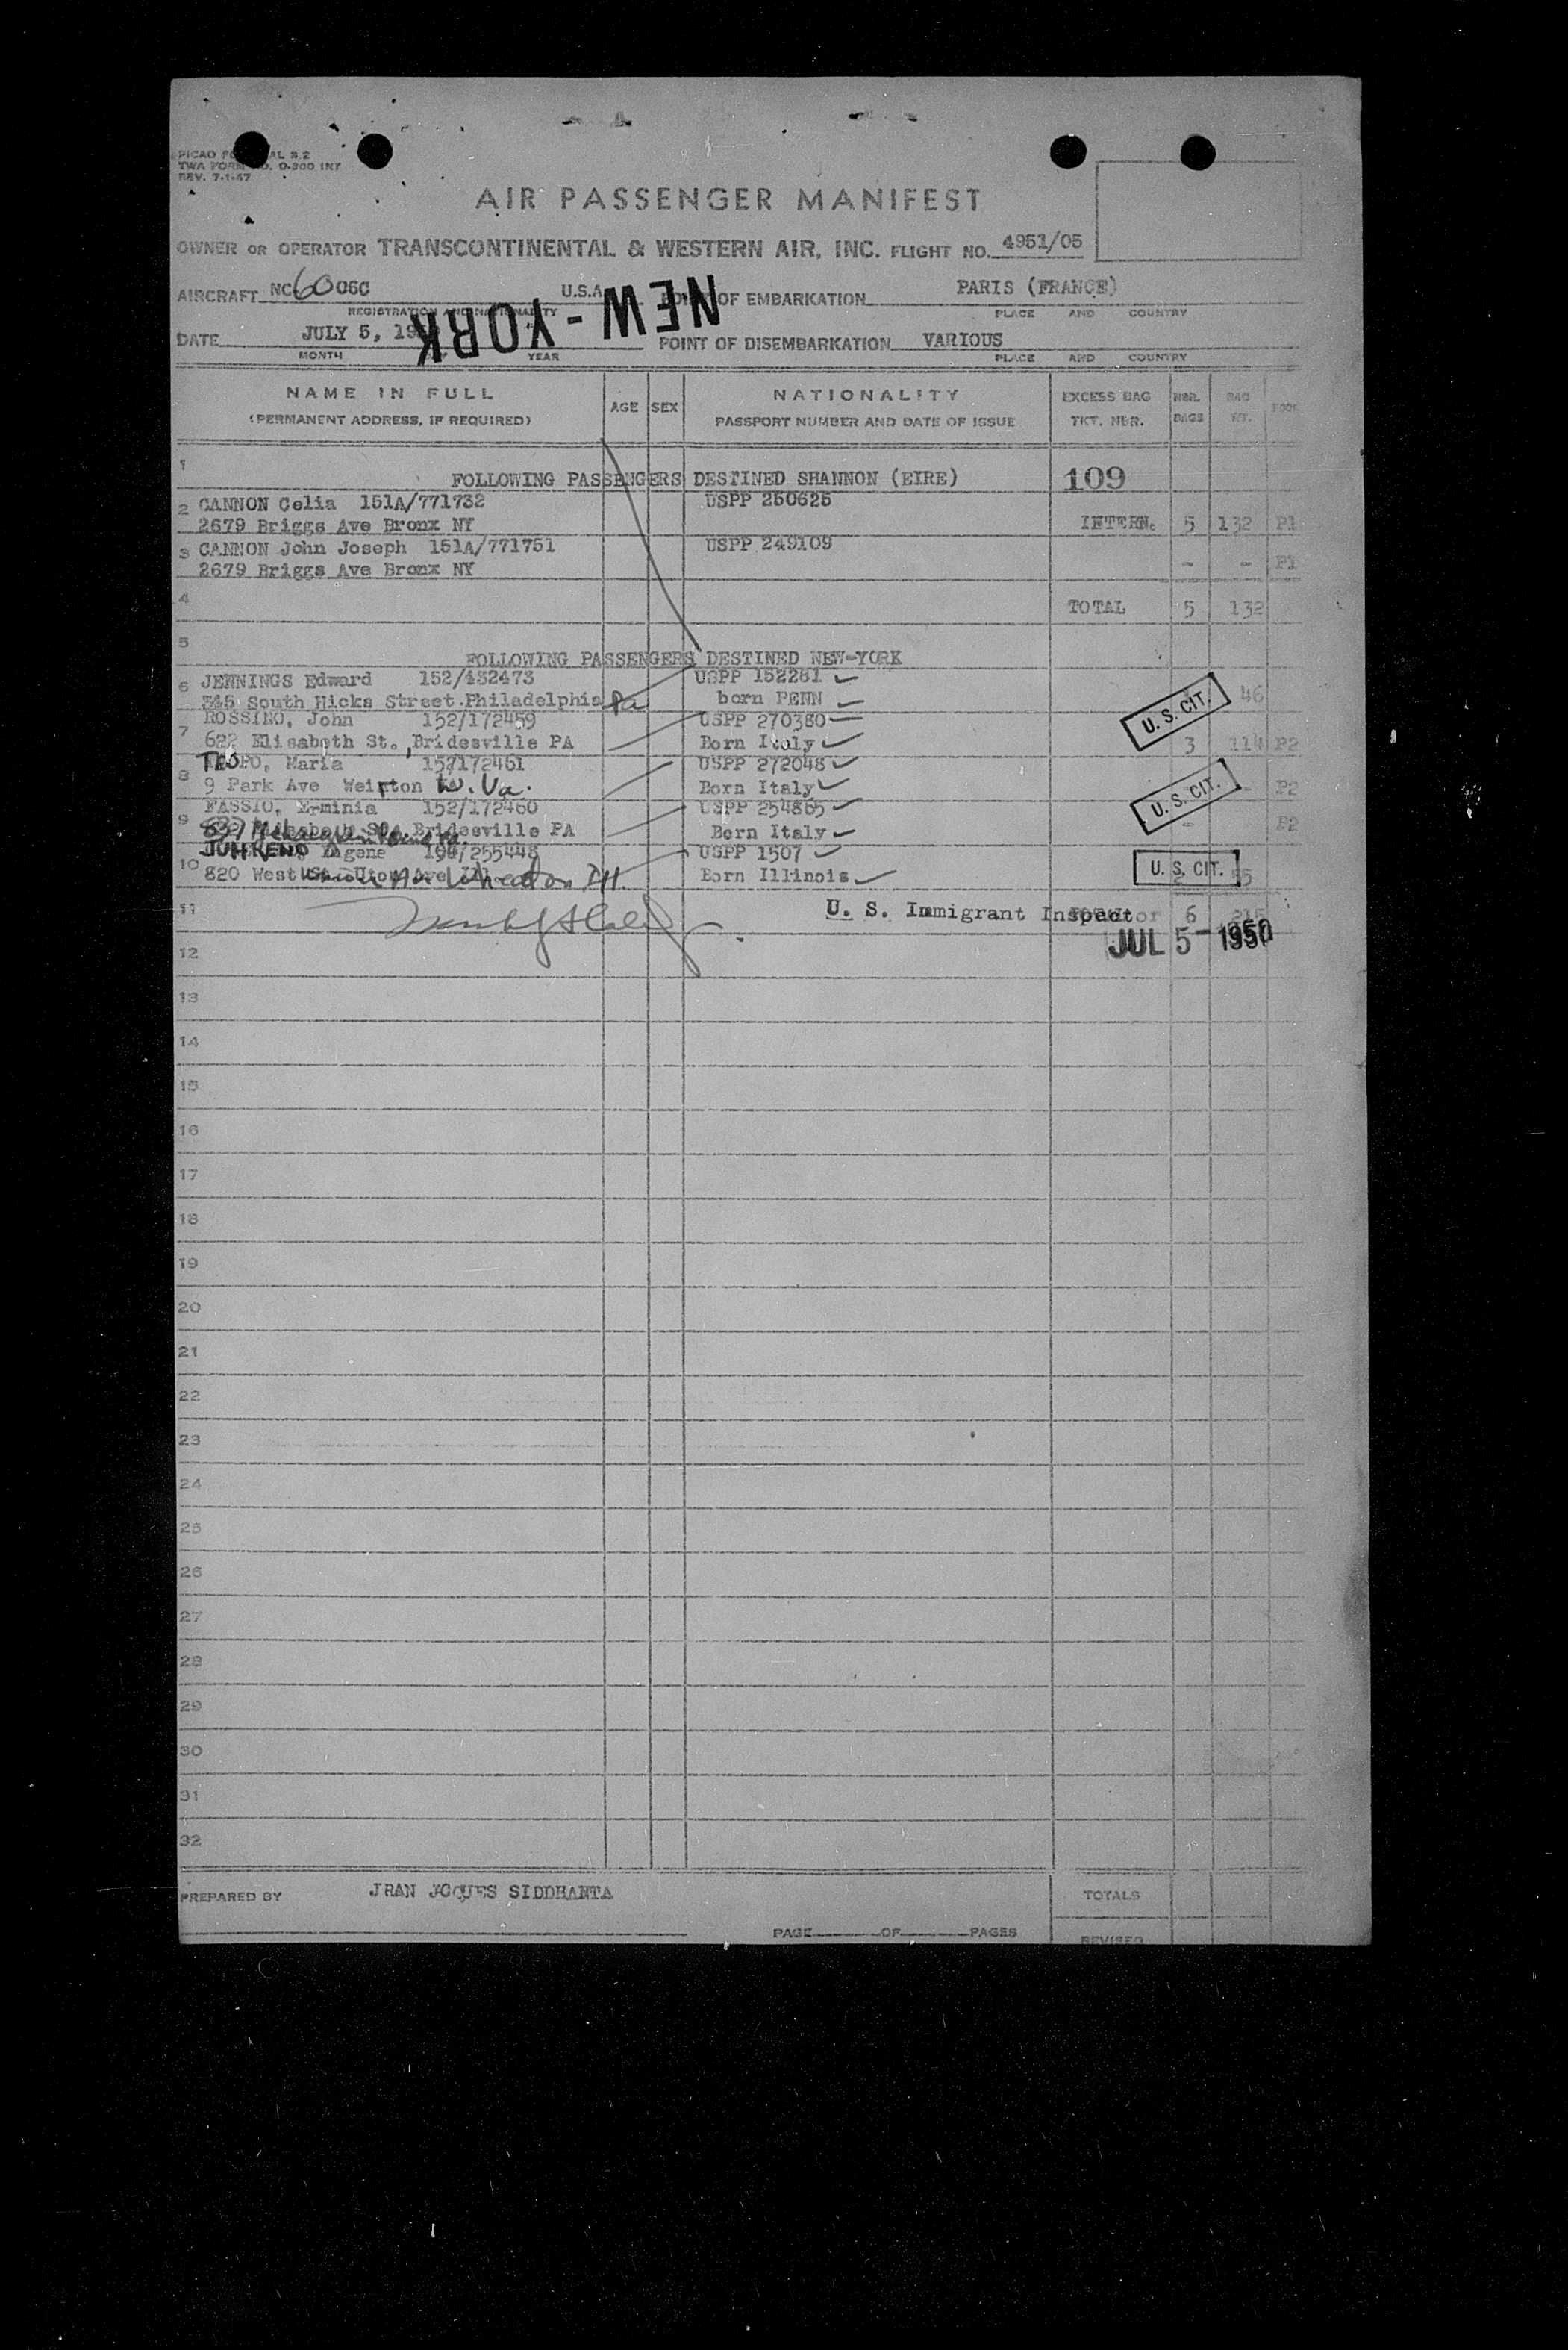 PICAO FO AL S.2
TWA FORM NO. O-300 INT
REV. 7-1-47
AIR PASSENGER MANIFEST
OWNER OR OPERATOR TRANSCONTINENTAL & WESTERN AIR, INC. FLIGHT NO. 4951/05
AIRCRAFT NC6006C U.S.A. POINT OF EMBARKATION PARIS (FRANCE)
REGISTRATION AND NATIONALITY PLACE AND COUNTRY
NEW-YORK
DATE JULY 5, 19 POINT OF DISEMBARKATION VARIOUS
MONTH YEAR PLACE AND COUNTRY
NAME IN FULL AGE SEX NATIONALITY EXCESS BAG NBR. BAG
(PERMANENT ADDRESS, IF REQUIRED) PASSPORT NUMBER AND DATE OF ISSUE TKT. NBR. BAGS WT.
1 FOLLOWING PASSENGERS DESTINED SHANNON (EIRE) 109
2 CANNON Celia 151A/771732 USPP 250625
2679 Briggs Ave Bronx NY INTERN. 5 132 P1
3 CANNON John Joseph 151A/771751 USPP 249109
2679 Briggs Ave Bronx NY - - P1
4 TOTAL 5 132
5 FOLLOWING PASSENGERS DESTINED NEW-YORK
6 JENNINGS Edward 152/432473 USPP 152281
345 South Hicks Street Philadelphia Pa born PENN U. S. CIT. 46
7 ROSSINO, John 152/172459 USPP 270380
622 Elisabeth St., Bridesville PA Born Italy 3 114 P2
8 Maria 152172461 USPP 272048
9 Park Ave Weirton W. Va. Born Italy U. S. CIT. - P2
9 FASSIO, Erminia 152/172460 USPP 254865
Bridesville PA Born Italy - P2
10 JUHREND Eugene 190/255448 USPP 1507
820 West Union Ave Wheaton Ill. Born Illinois U. S. CIT. 55
11 U. S. Immigrant Inspector 6 215
JUL 5 - 1950
12
13
14
15
16
17
18
19
20
21
22
23
24
25
26
27
28
29
30
31
32
PREPARED BY JRAN JCQUES SIDDHANTA TOTALS
PAGE OF PAGES REVISED